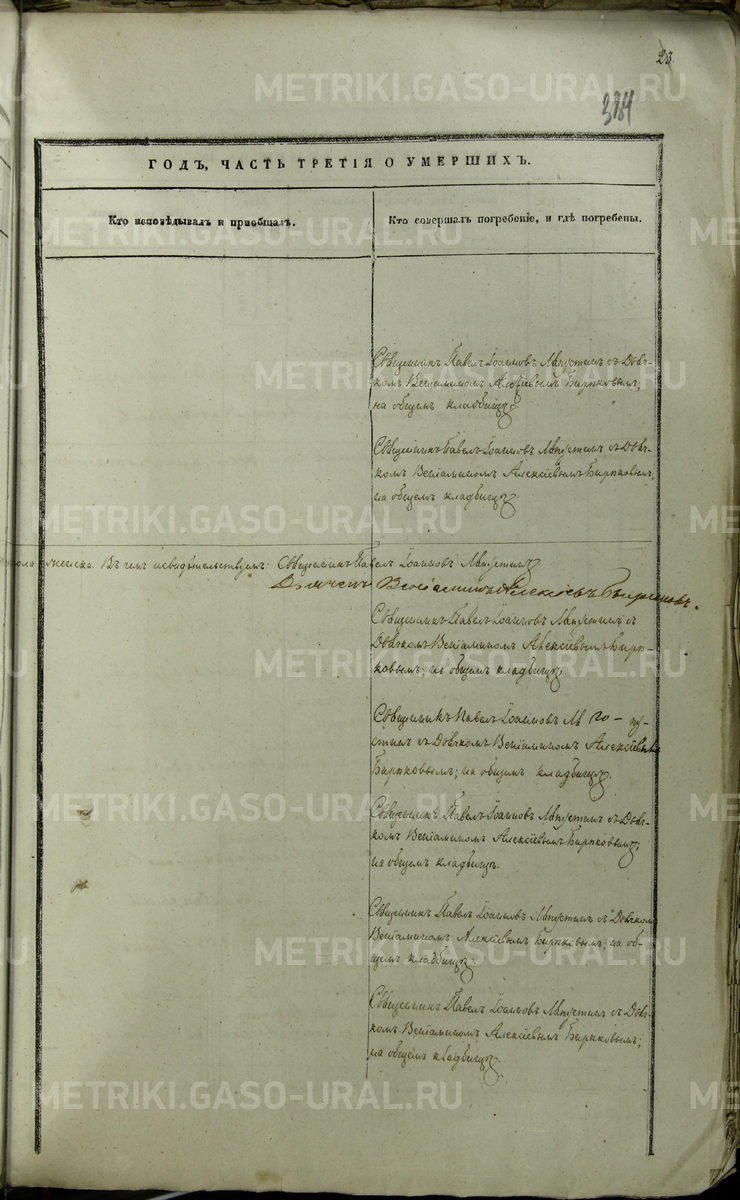 23.
384
ГОДЪ, ЧАСТЬ ТРЕТІЯ О УМЕРШИХЪ.
Кто исповѣдывалъ и пріобщалъ.
Кто совершалъ погребеніе, и гдѣ погребены.
Священникъ Павелъ Іоанновъ с Дьяч-
комъ Веніаминомъ Алексѣевымъ Бирюковымъ;
на общемъ кладбищѣ.
Священникъ Павелъ Іоанновъ с Дьяч-
комъ Веніаминомъ Алексѣевымъ Бирюковымъ,
на общемъ кладбищѣ.
женска. Въ чемъ и свидѣтельствуемъ: Священникъ Павелъ Іоанновъ
Дьячекъ Веніаминъ Алексѣевъ Бирюковъ.
Священникъ Павелъ Іоанновъ с
Дьячкомъ Веніаминомъ Алексѣевымъ Бирю-
ковымъ; на общемъ кладбищѣ.
Священникъ Павелъ Іоанновъ
с Дьячкомъ Веніаминомъ Алексѣевымъ
Бирюковымъ; на общемъ кладбищѣ.
Священникъ Павелъ Іоанновъ с Дьяч-
комъ Веніаминомъ Алексѣевымъ Бирюковымъ;
на общемъ кладбищѣ.
Священникъ Павелъ Іоанновъ с Дьячкомъ
Веніаминомъ Алексѣевымъ Бирюковымъ; на об-
щемъ кладбищѣ.
Священникъ Павелъ Іоанновъ с Дьяч-
комъ Веніаминомъ Алексѣевымъ Бирюковымъ;
на общемъ кладбищѣ.
METRIKI.GASO-URAL.RU